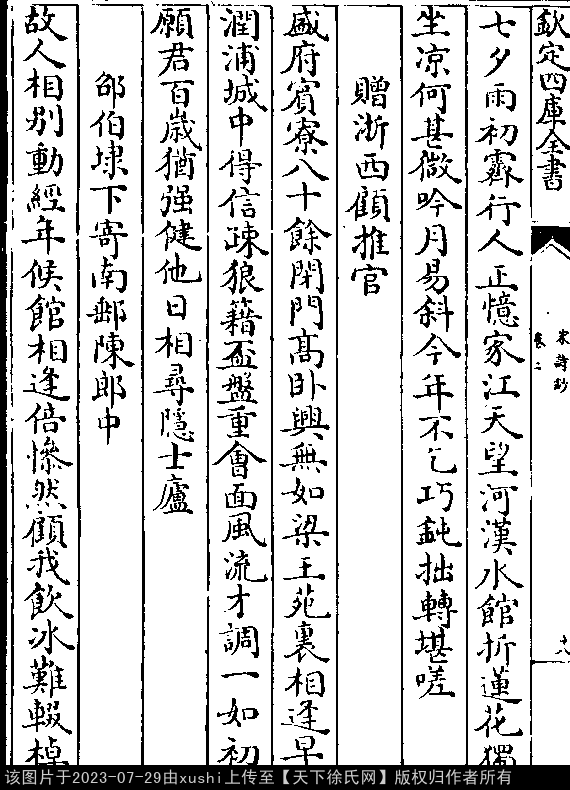 欽定四庫全書
宋詩鈔
卷二
十八
七夕雨初霽行人正憶家江天望河漢水館折蓮花獨
坐凉何甚微吟月易斜今年不乞巧鈍拙轉堪嗟
贈浙西顧推官
盛府賓寮八十餘閉門高卧興無如梁王苑裏相逢早
潤浦城中得信疎狼籍盃盤重會面風流才調一如初
願君百歲猶强健他日相尋隱士廬
邵伯埭下寄南邨陳郎中
故人相别動經年候館相逢倍慘然顧我飲冰難輟棹
该图片于2023-07-29由xushi上传至【天下徐氏网】版权归作者所有